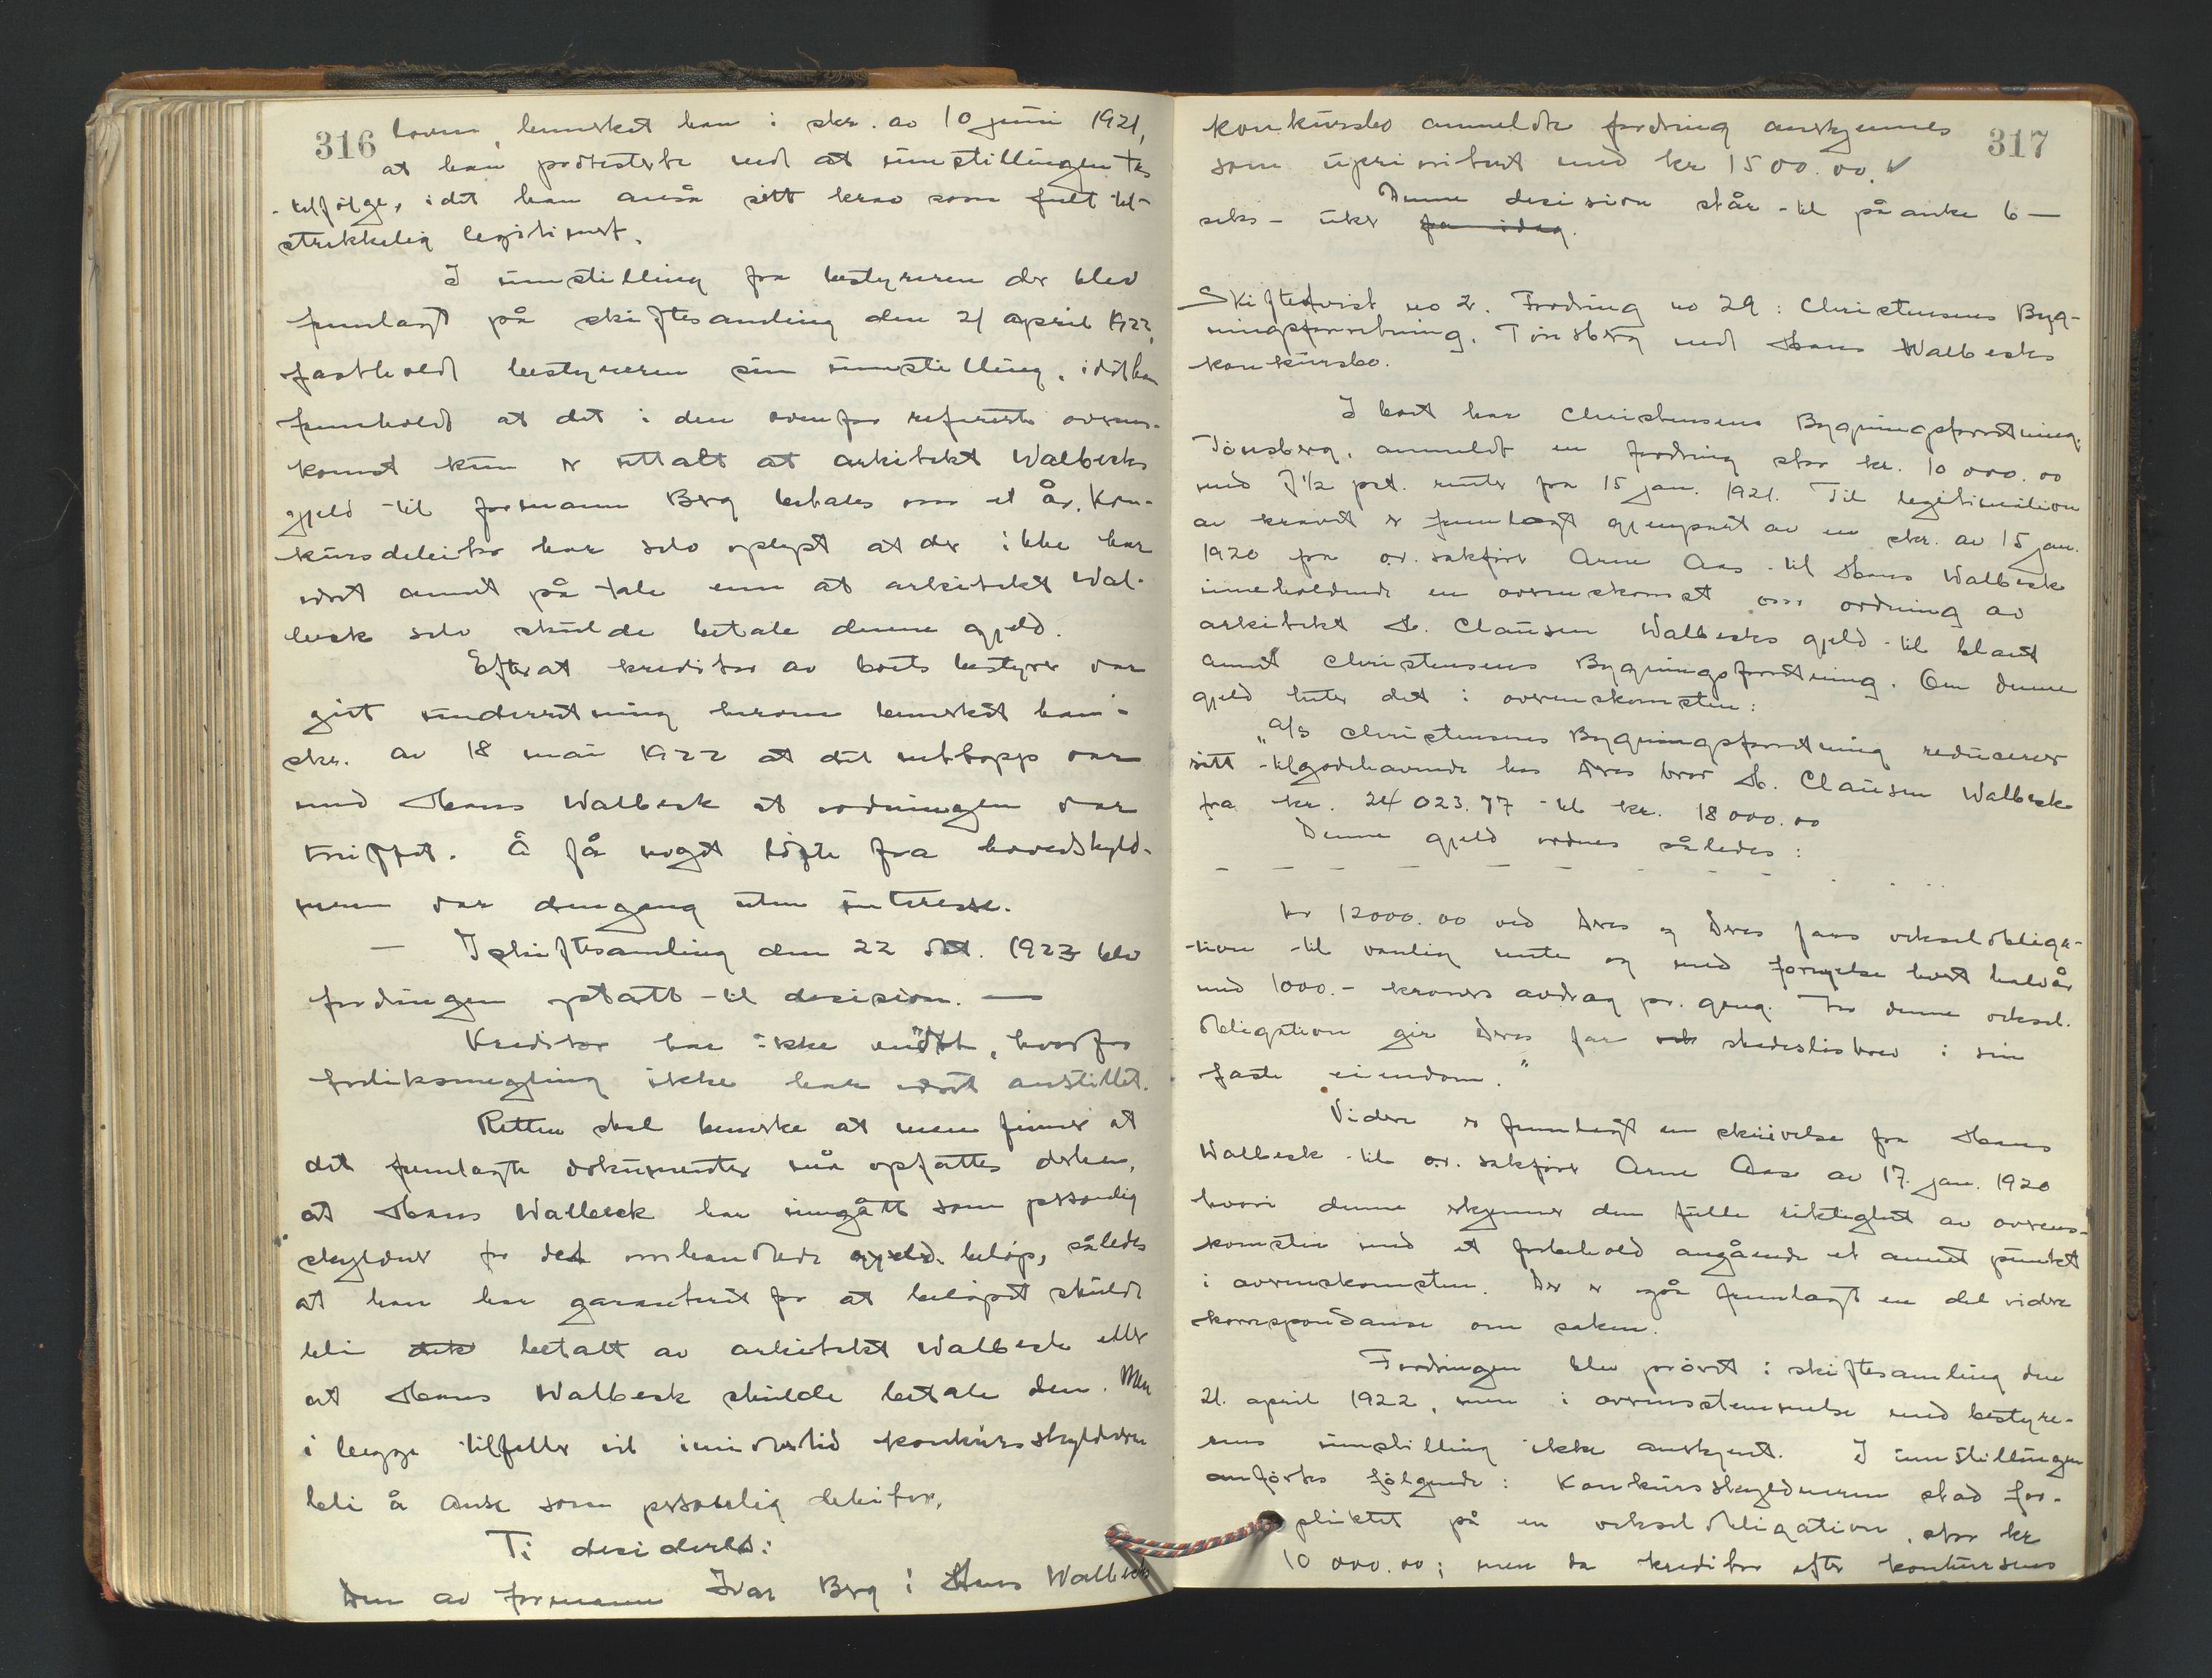 316
loven, bemerket han i skr. av 10 juni 1921,
at han protesterte ved at innstillingen tas
tilfølge, idet han anså sitt krav som fult til-
strekkelig legitimert.
I innstilling fra bestyreren der blev
fremlagt på skiftesamling den 21 april 1922,
fastholdt bestyreren sin innstilling, idet han
fremholdt at det i den ovenfor refererte overens-
komst kun er uttalt at arkitekt Walbecks
gjeld til formann Berg betales om et år. Kon-
kursdebitor har selv oplyst at der ikke har
vært annet på tale enn at arkitekt Wal-
beck selv skulde betale denne gjeld.
Efterat kreditor av boets bestyrer var
gitt underretning herom bemerket han i
skr. av 18 mai 1922 at det nettopp var
med Hans Walbeck at ordningen var
truffet. Å få noget løfte fra hovedskyld-
neren var dengang uten interesse.
— I skiftesamling den 22 okt. 1923 blev
fordringen optatt til decision. —
Kreditor har ikke møtt, hvorfor
forliksmegling ikke har vært anstillet.
Retten skal bemerke at men finner at
det fremlagte dokumenter må opfattes derhen,
at Hans Walbeck har inngått som personlig
skyldner for det omhandlede gjeld. beløp, således
at han har garantert for at beløpet skulde
bli det betalt av arkitekt Walbeck eller
at Hans Walbeck skulde betale den. Men
i begge tilfeller vil imidlertid konkursskyldneren
bli å anse som personlig debitor.
Ti decideres:
Den av formann Ivar Berg i Hans Walbecks
317
konkursbo anmeldte fordring anerkjennes
som uprioritert med kr 1500.00.
Denne decision står til påanke 6 —
seks — uker fra idag.
Skiftetvist no 2. Fordring no 29: Christensens Byg-
ningsforretning, Tønsberg mot Hans Walbecks
konkursbo.
I boet har Christensens Bygningsforretning,
Tønsberg, anmeldt en fordring stor kr. 10 000.00
med 7½ pct. renter fra 15 jan. 1921. Til legitimation
av kravet er fremlagt gjenpart av en skr. av 15 jan.
1920 fra o.r. sakfører Arne Aas til Hans Walbeck
inneholdende en overenskomst om ordning av
arkitekt H. Clausen Walbecks gjeld til blant
annet Christensens Bygningsforretning. Om denne
gjeld heter det i overenskomsten:
"A/S Christensens Bygningsforretning reducerer
sitt tilgodehavende hos Deres bror H. Clausen Walbeck
fra kr. 24 023.77 til kr. 18 000.00
Denne gjeld ordnes således:
— — — — — — — — — —
kr 12000.00 ved Deres og Deres fars vekselobliga-
tion til vanlig rente og med fornyelse hvert halvår
med 1000.- kroners avdrag pr. gang. For denne veksel-
obligation gir Deres far skadesløsbrev i sin
faste eiendom."
Videre er fremlagt en skrivelse fra Hans
Walbeck til o.r. sakfører Arne Aas av 17. jan. 1920
hvori denne erkjenner den fulle riktighet av overens-
komsten med et forbehold angående et annet punkt
i overenskomsten. Der er også fremlagt en del videre
korrespondanse om saken.
Fordringen blev prøvet i skiftesamling den
21. april 1922, men i overensstemmelse med bestyre-
rens innstilling ikke anerkjent. I innstillingen
anførtes følgende: Konkursskyldneren stod for-
pliktet på en vekselobligation, stor kr
10 000.00; men da kreditor efter konkursens